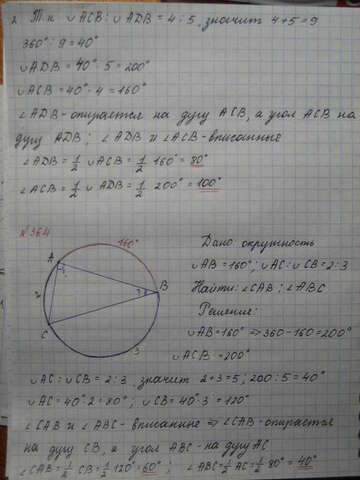 2. Т.к. ∪ACB : ∪ADB = 4 : 5, значит 4+5=9
360° : 9 = 40°
∪ADB = 40° · 5 = 200°
∪ACB = 40° · 4 = 160°
∠ADB - опирается на дугу ACB, а угол ACB на
дугу ADB ; ∠ADB и ∠ACB - вписанные
∠ADB = 1/2 ∪ACB = 1/2 · 160° = 80°
∠ACB = 1/2 ∪ADB = 1/2 · 200° = 100°
№364
160°
A
B
C
2
3
Дано: окружность
∪AB = 160° ; ∪AC : ∪CB = 2 : 3
Найти: ∠CAB ; ∠ABC
Решение:
∪AB = 160° ⇒ 360 - 160 = 200°
∪ACB = 200°
∪AC : ∪CB = 2 : 3, значит 2+3=5 ; 200 : 5 = 40°
∪AC = 40° · 2 = 80° ; ∪CB = 40° · 3 = 120°
∠CAB и ∠ABC - вписанные ⇒ ∠CAB - опирается
на дугу CB, а угол ABC - на дугу AC
∠CAB = 1/2 CB = 1/2 · 120° = 60° ; ∠ABC = 1/2 AC = 1/2 · 80° = 40°